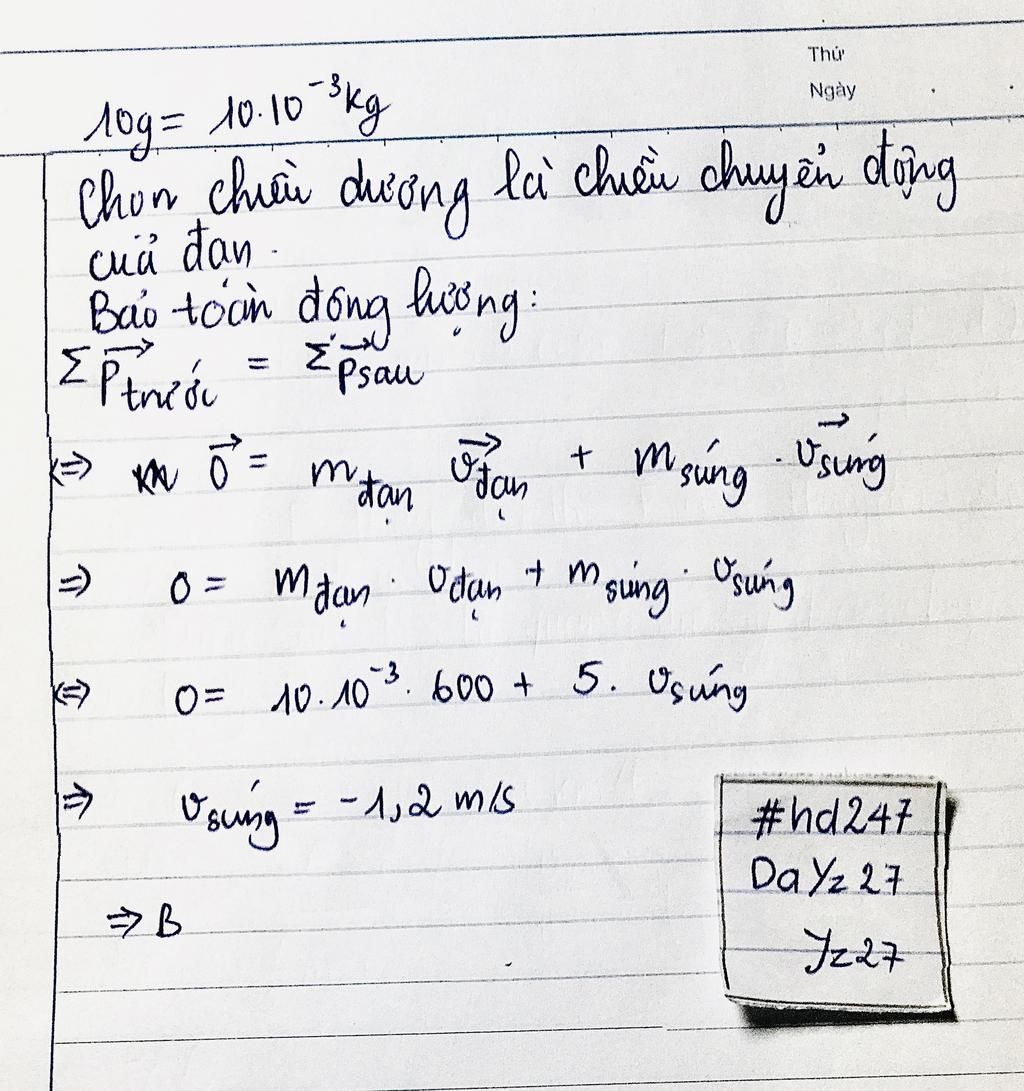 Thứ
Ngày
10g = 10.10⁻³kg
Chọn chiều dương là chiều chuyển động
của đạn.
Bảo toàn động lượng:
Σ P⃗trước = Σ P⃗sau
⇔ 0⃗ = mđạn v⃗đạn + msúng . v⃗súng
⇒ 0 = mđạn . vđạn + msúng . vsúng
⇔ 0 = 10.10⁻³. 600 + 5. vsúng
⇒ vsúng = -1,2 m/s
⇒ B
#hd247
DaYz27
Yz27